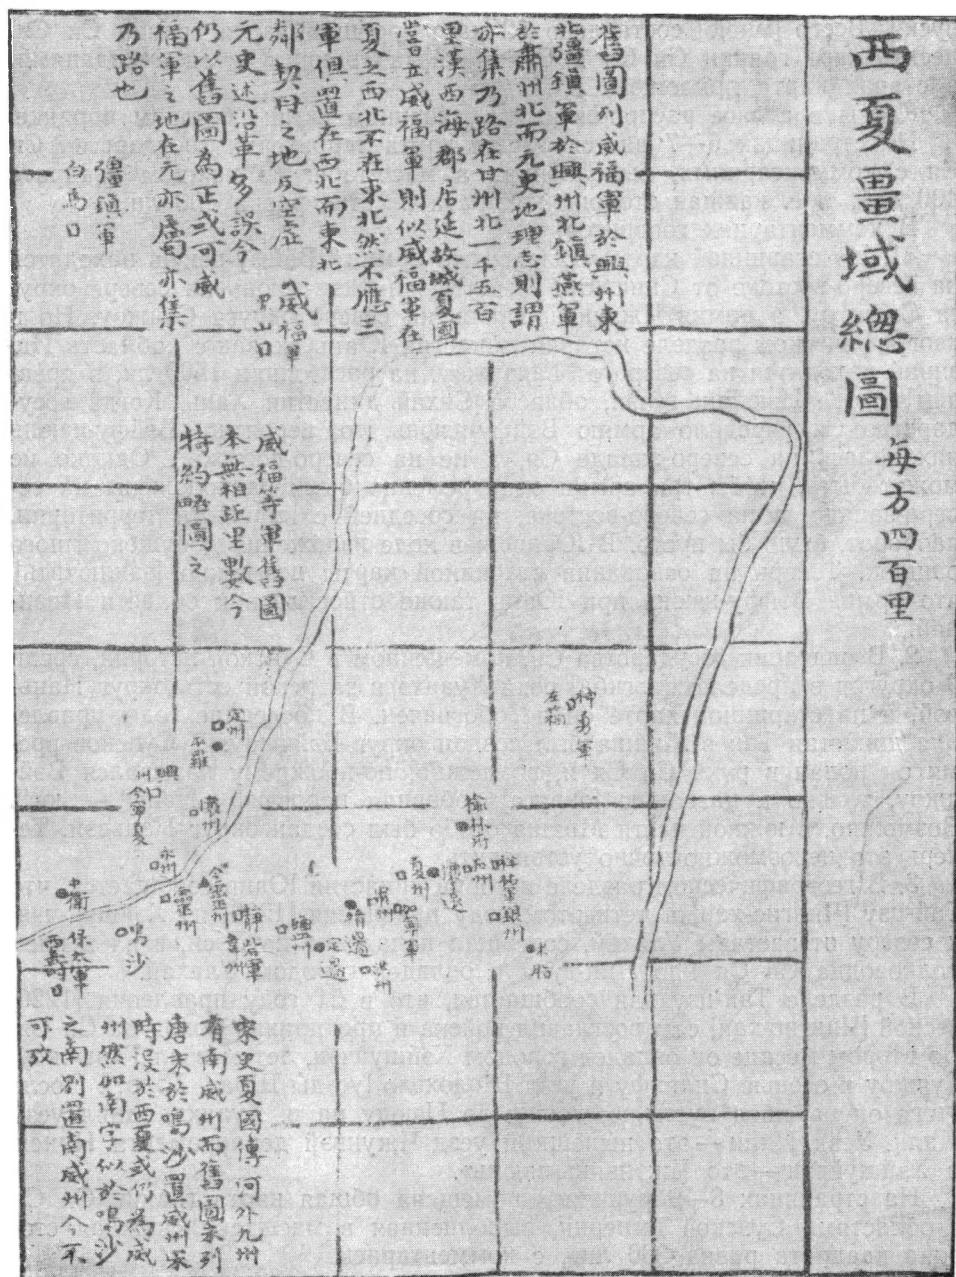 西夏畺域總圖
每方四百里
舊圖列威福軍於興州東
北彊鎮軍於興州北鎮燕軍
於肅州北而元史地理志則謂
亦集乃路在甘州北一千五百
里漢西海郡居延故城夏國
嘗立威福軍則似威福軍在
夏之西北不在東北然不應三
軍但置在西北而東北
鄰契丹之地反空虛
元史述沿革多誤今
仍舊圖為正或可威
福軍之地在元亦屬亦集
乃路也
威福軍
黑山口
彊鎮軍
白馬口
威福等軍舊圖
本無相距里數今
特約略圖之
神勇軍
左廂
定州
平羅
興州
今寧夏
懷州
永州
靈州
今靈州
中衛
鳴沙
保太軍
西壽
靜塞軍
韋州
鹽州
靖邊
洪州
夏州
懷遠
榆林府
祥祐軍
銀州
米脂
宋史夏國傳河外九州
有南威州而舊圖未列
唐末於鳴沙置威州宋
時沒於西夏或仍為威
州然加南字似於鳴沙
之南別置南威州今不
可攷